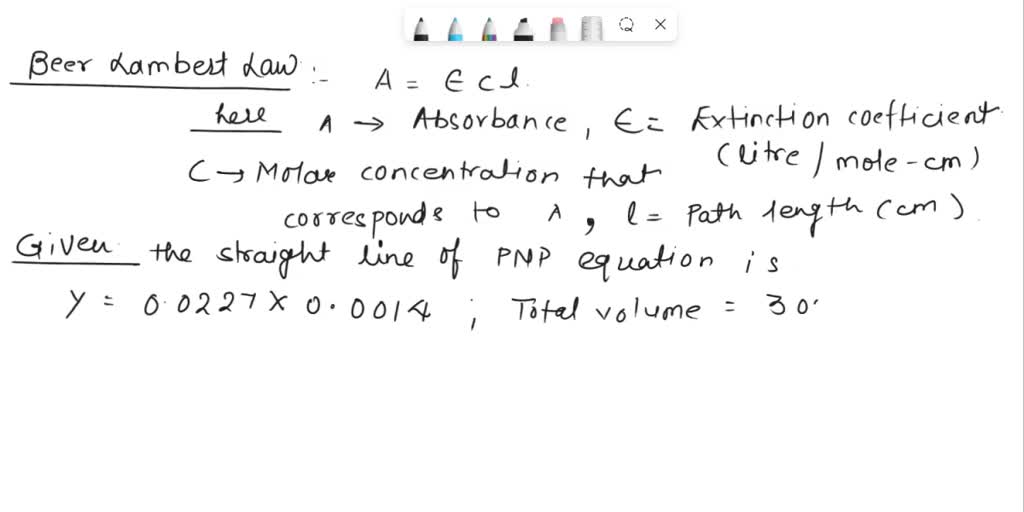 Beer Lambert Law :- A = ϵ c l.
here A → Absorbance, ϵ = Extinction coefficient
(litre / mole-cm)
C → Molar concentration that
corresponds to A, l = Path length (cm).
Given the straight line of PNP equation is
y = 0.0227 X 0.0014 ; Total volume = 30